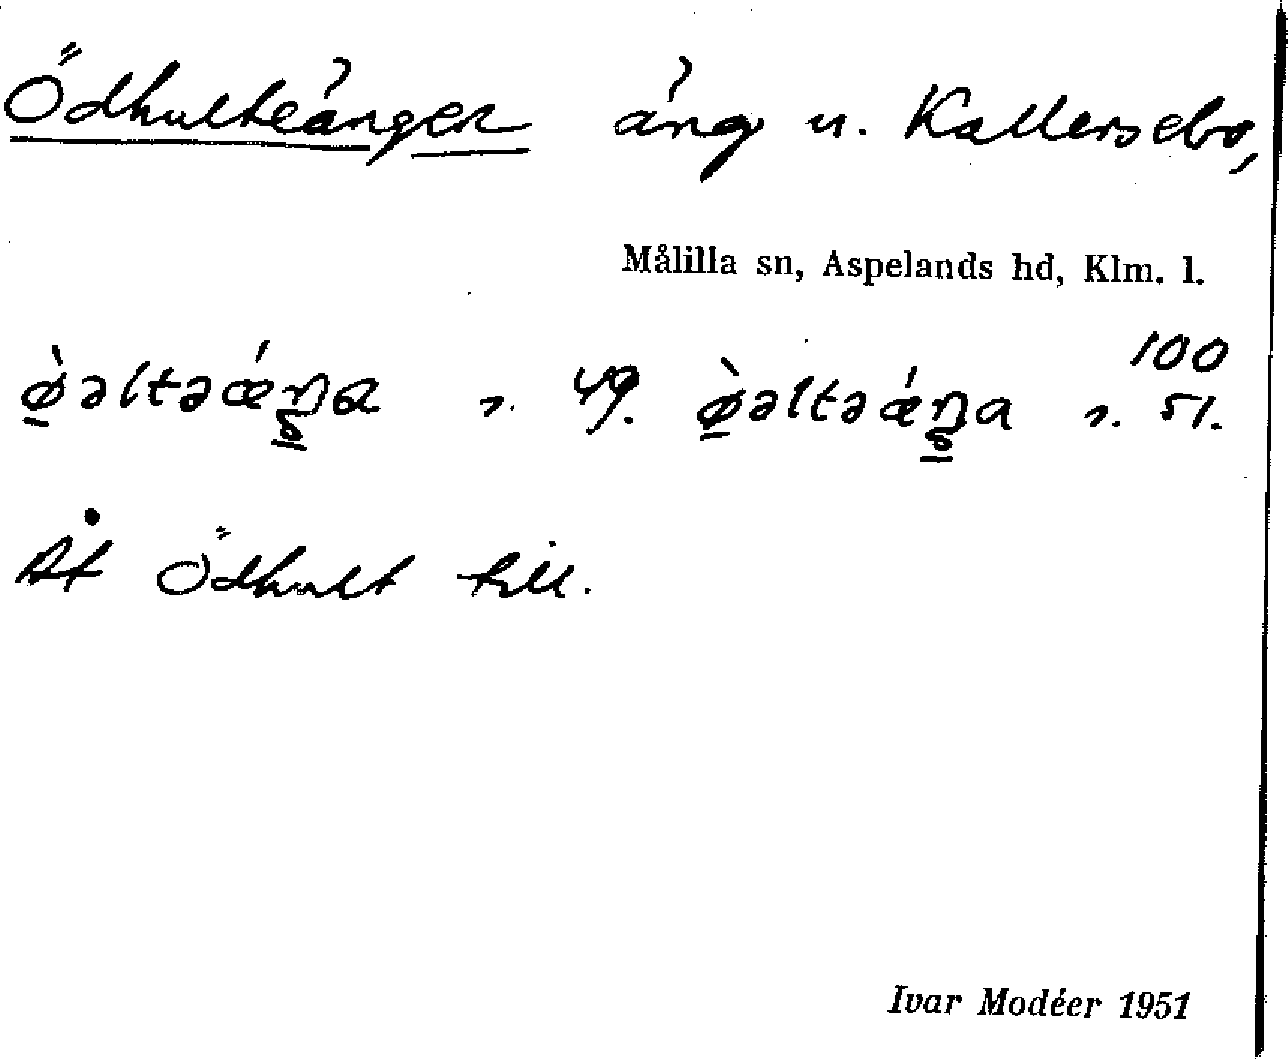 Ödhulteängen äng u. Kallersebo,
Målilla sn, Aspelands hd, Klm. l.
100
ø̠̀əltəǽŋa s. 49. ø̠̀əltəǽŋa s. 51.
Åt Ödhult till.
Ivar Modéer 1951